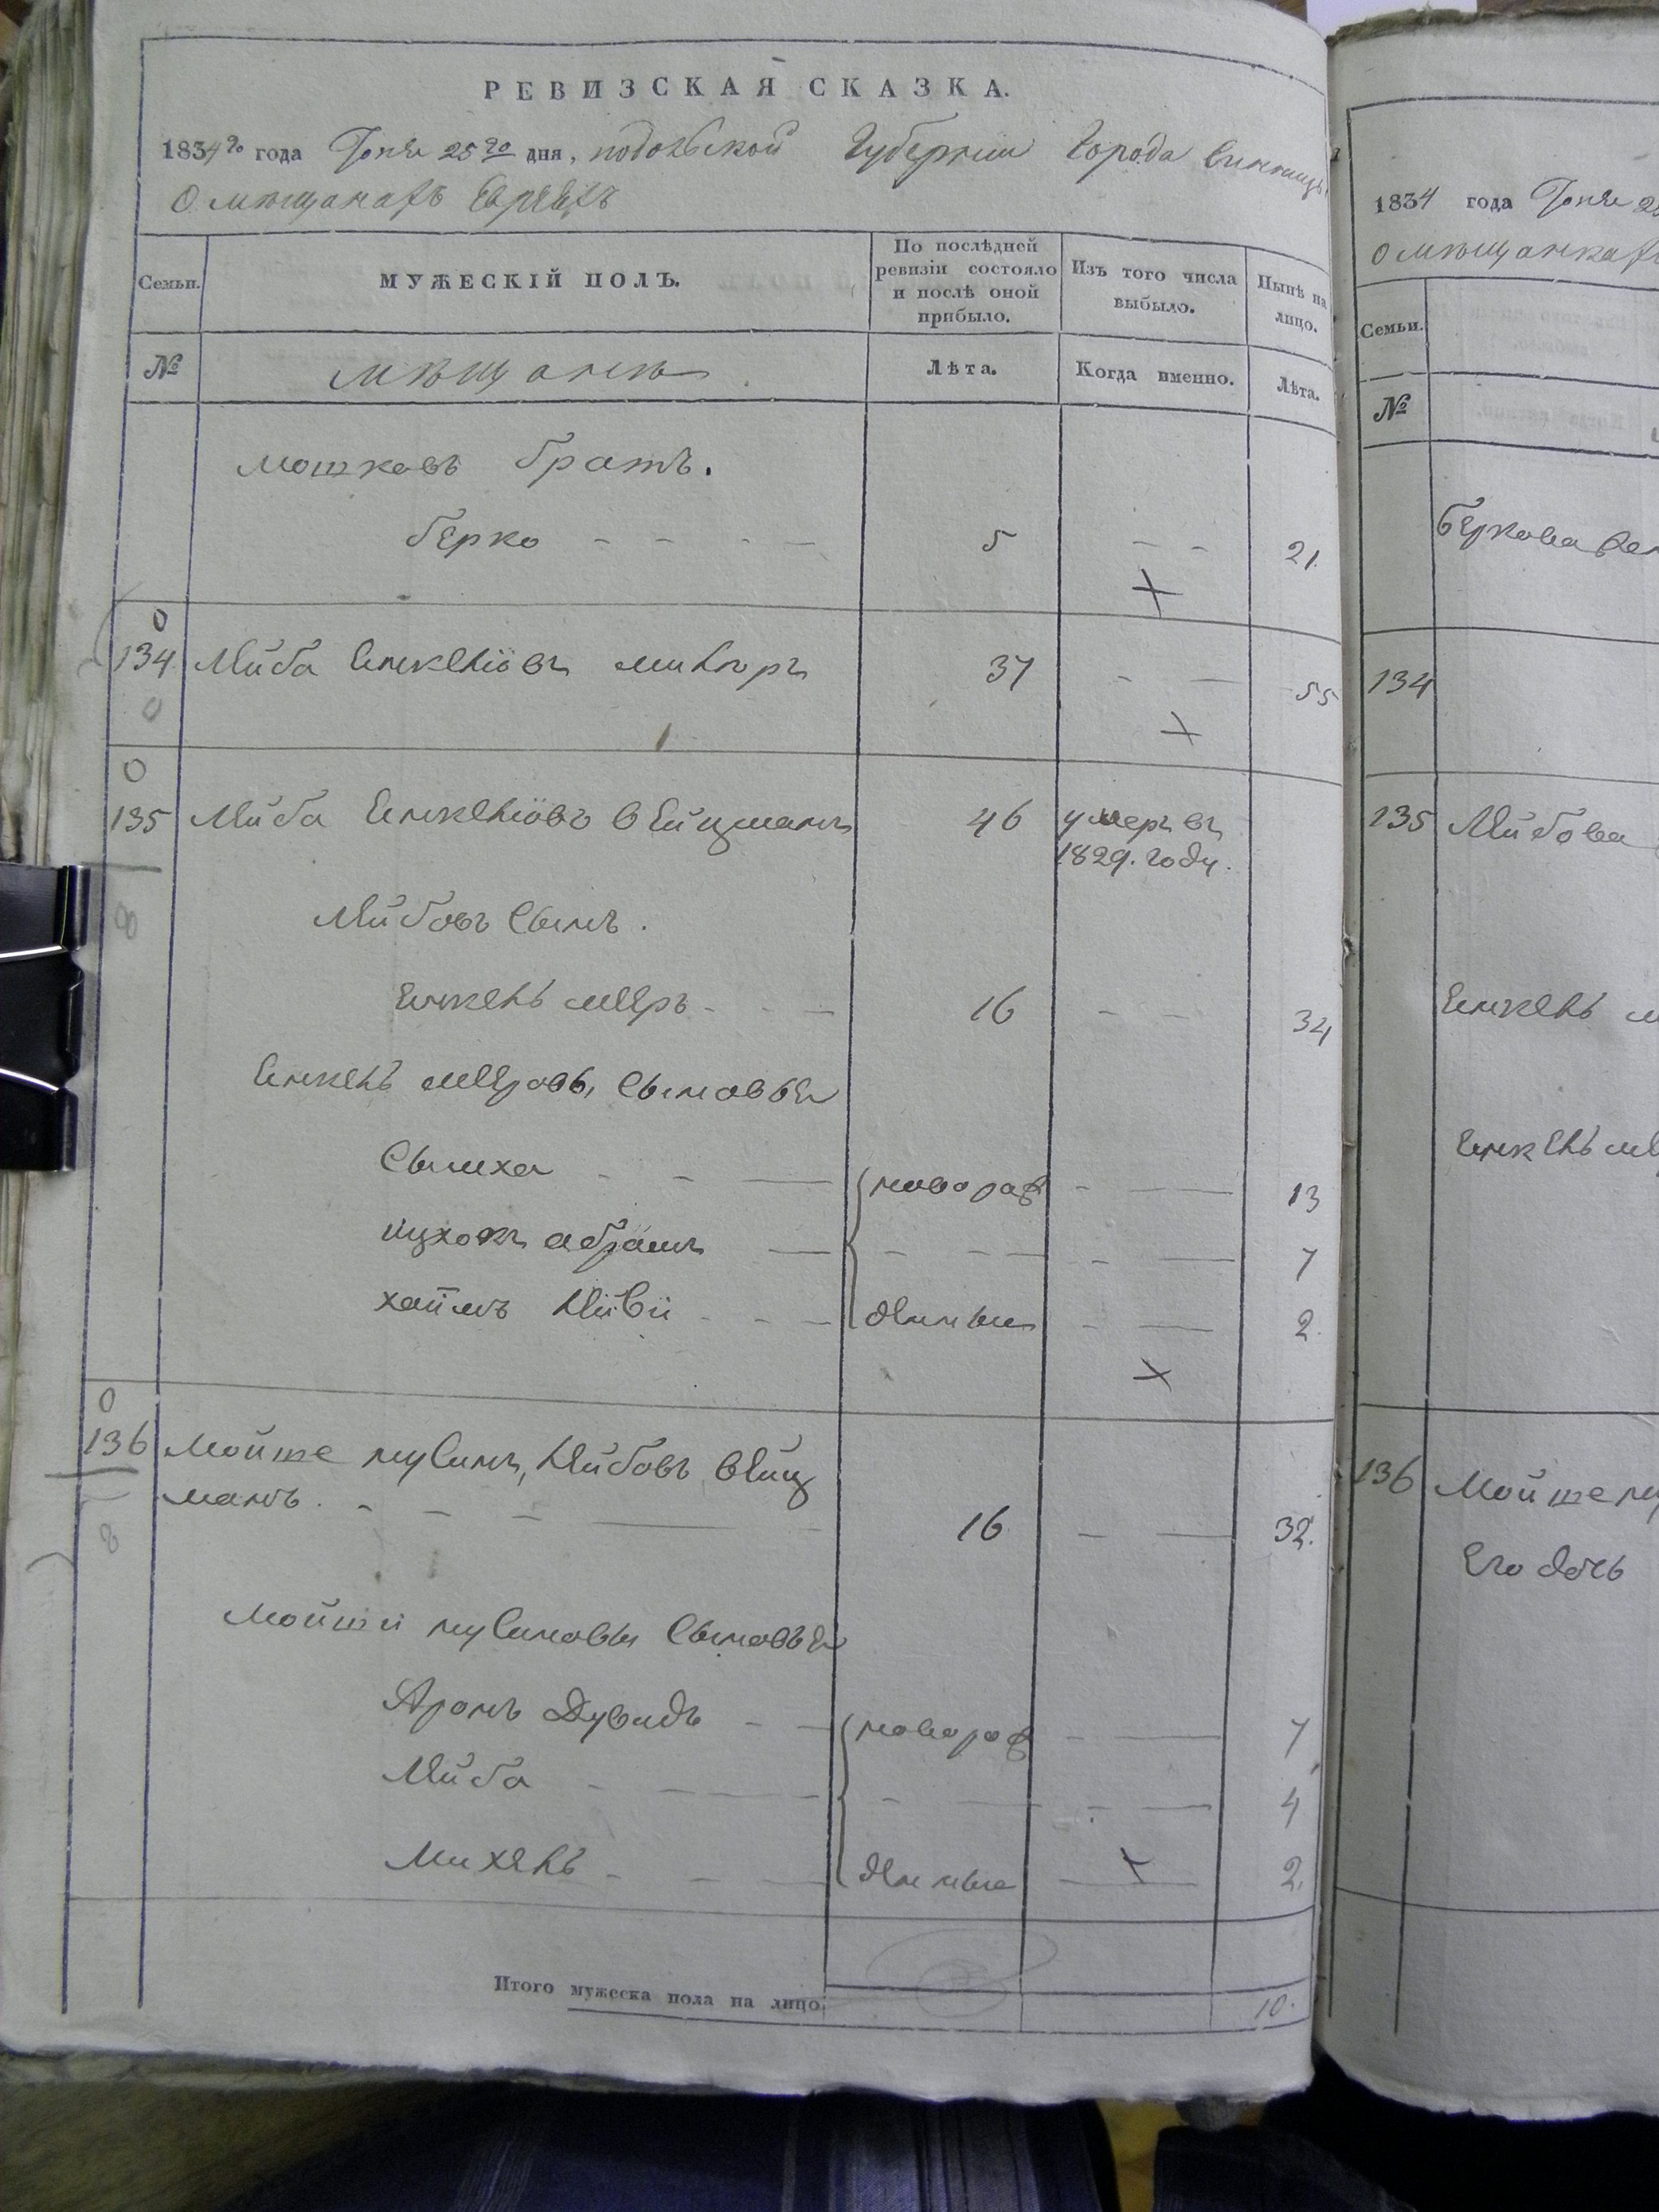 РЕВИЗСКАЯ СКАЗКА.
1834го года Іюня 25го дня, подольской Губерніи Города винницы
О мѣщанахъ Евреяхъ
Семьи.
МУЖЕСКІЙ ПОЛЪ.
По послѣдней ревизіи состояло и послѣ оной прибыло.
Изъ того числа выбыло.
Нынѣ на лицо.
№
мѣщане
Лѣта.
Когда именно.
Лѣта.
мошковъ братъ.
берко 5 21.
134 Лейба Инкелiовъ 37 55
135 Лейба Инкелiовъ вейцманъ 46 умеръ въ 1829. году. 
Лейбовъ Сынъ.
Инкель мееръ 16 34
Инкель мееровы Сыновья
Сымха новорож 13
ицхокъ абрамъ 7
хаимъ Лейви денные 2
136 Мойше нусинъ, Лейбовъ вейц
манъ. 16 32.
Мойши нусиновы Сыновья
Аронъ Дувидъ новорож 7
Лейба 4
Михель денные 2.
Итого мужеска пола на лицо. 10.
1834 года Іюня 25
О мѣщанкахъ
Семьи.
№
беркова
134
135 Лейбова
Инкель
Инкель
136 Мойше
Его дочь